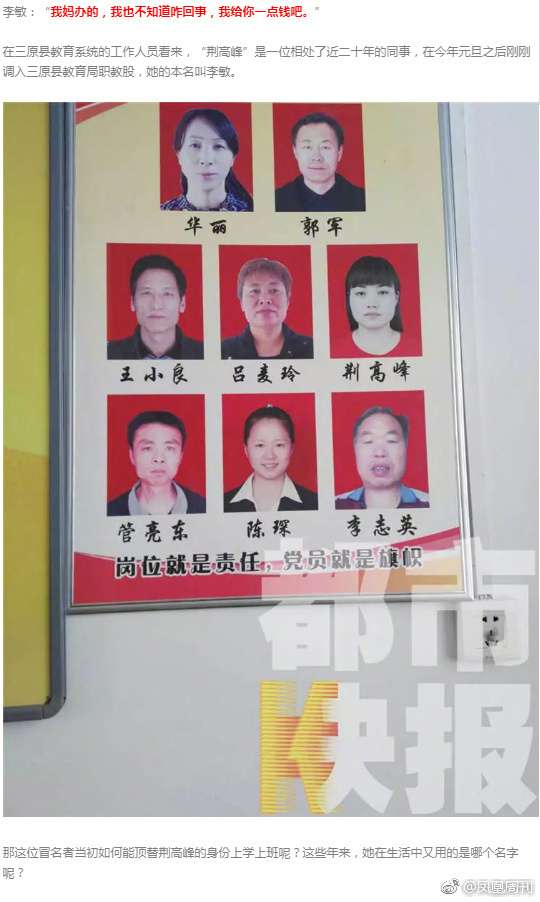 李敏：“我妈办的，我也不知道咋回事，我给你一点钱吧。”
在三原县教育系统的工作人员看来，“荆高峰”是一位相处了近二十年的同事，在今年元旦之后刚刚
调入三原县教育局职教股，她的本名叫李敏。
华丽 郭军
王小良 吕麦玲 荆高峰
管亮东 陈琛 李志英
岗位就是责任，党员就是旗帜
都市
快报
那这位冒名者当初如何能顶替荆高峰的身份上学上班呢？这些年来，她在生活中又用的是哪个名字
呢？
@凤凰周刊